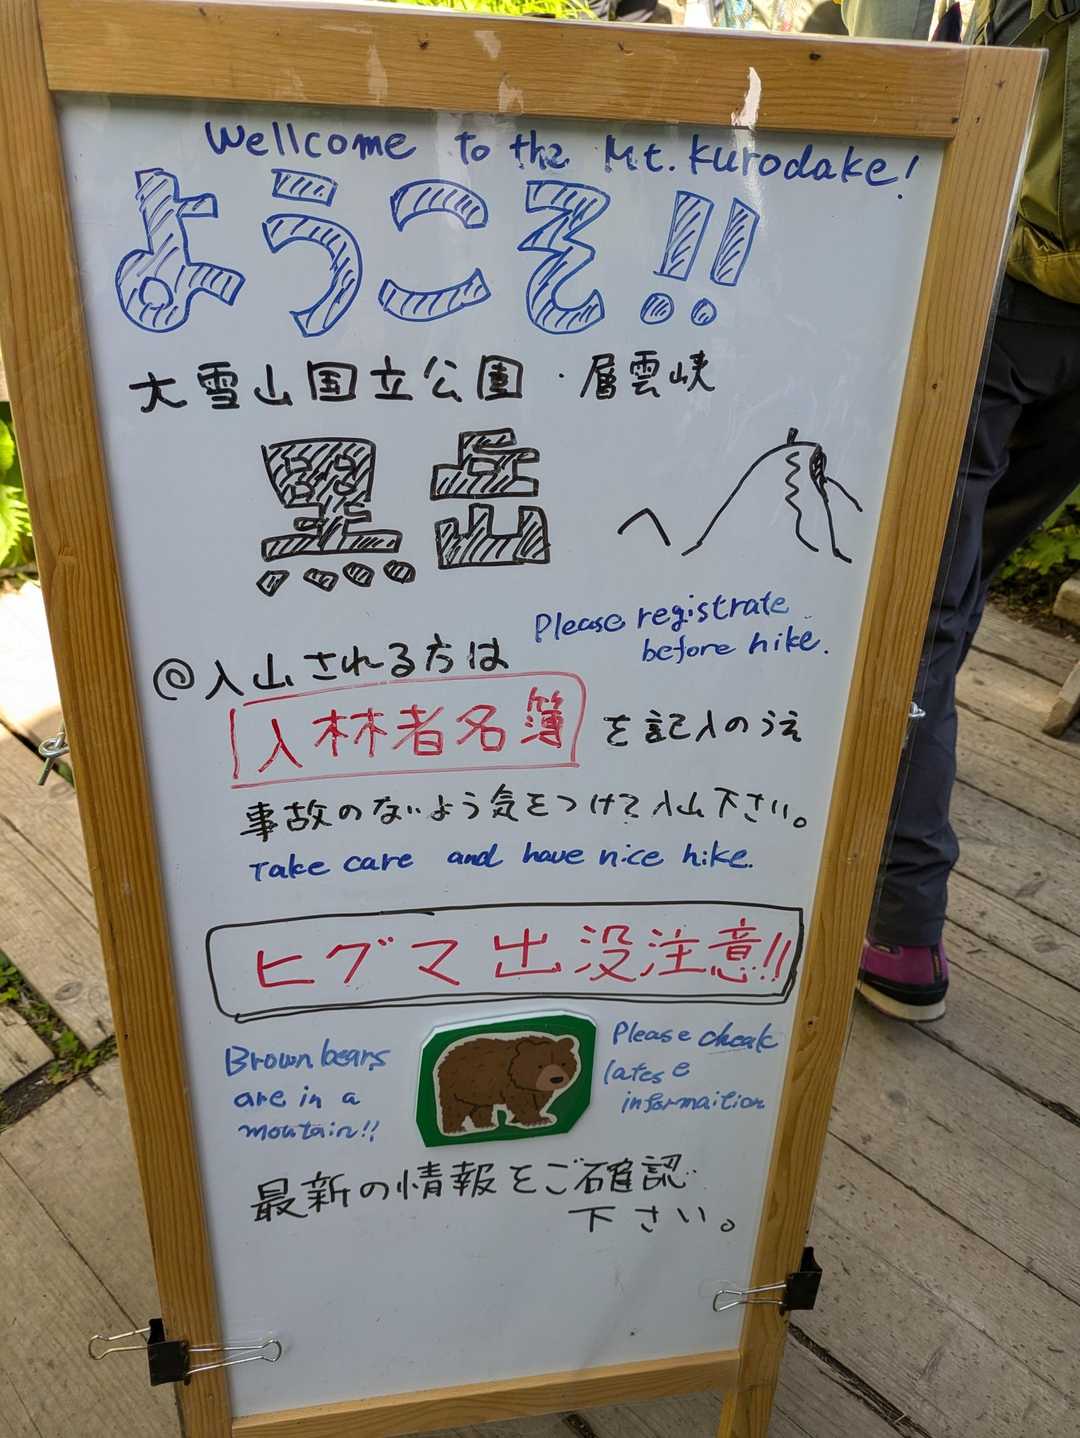 Wellcome to the Mt. Kurodake!
ようこそ!!
大雪山国立公園・層雲峡
黒岳
Please registrate
before hike.
@入山される方は
入林者名簿を記入のうえ
事故のないよう気をつけて入山下さい。
Take care and have nice hike.
ヒグマ出没注意!!
Brown bears
are in a
moutain!!
Please cheak
latese
informaition
最新の情報をご確認
下さい。